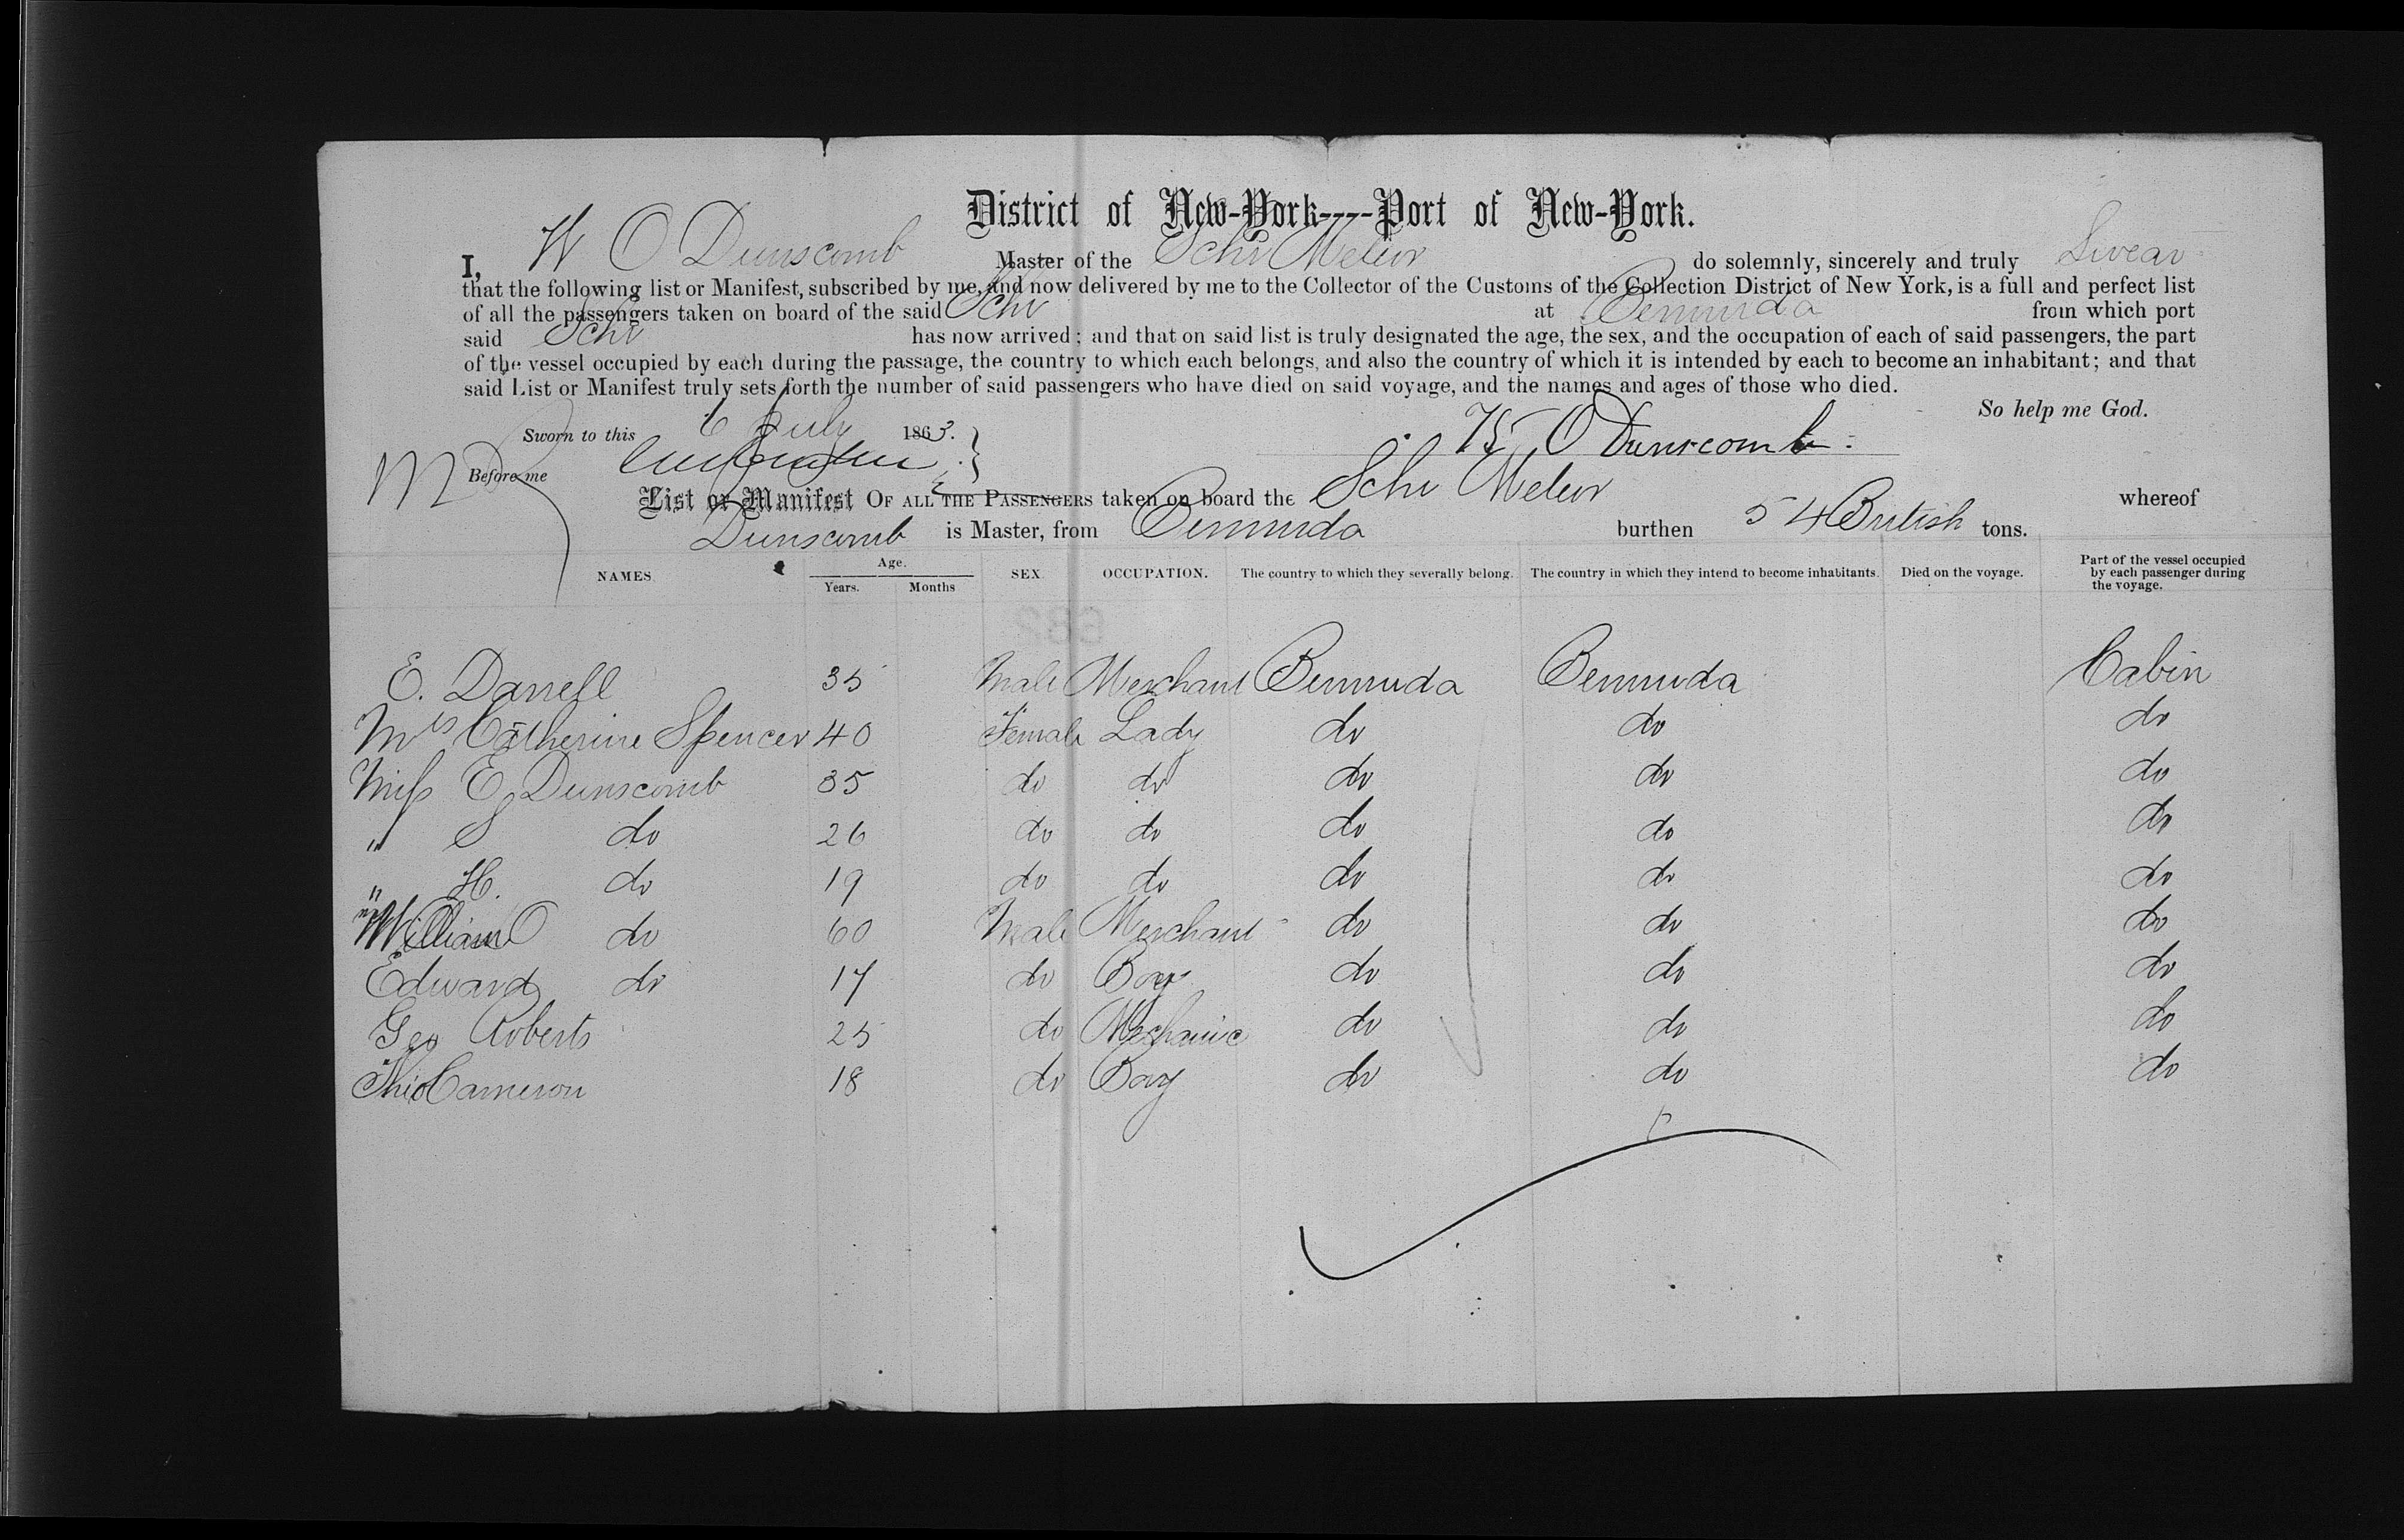 District of New-York----Port of New-York.
I, W O Dunscomb Master of the Schr Meteor do solemnly, sincerely and truly Swear
that the following list or Manifest, subscribed by me, and now delivered by me to the Collector of the Customs of the Collection District of New York, is a full and perfect list
of all the passengers taken on board of the said Schr at Bermuda from which port
said Schr has now arrived; and that on said list is truly designated the age, the sex, and the occupation of each of said passengers, the part
of the vessel occupied by each during the passage, the country to which each belongs, and also the country of which it is intended by each to become an inhabitant; and that
said List or Manifest truly sets forth the number of said passengers who have died on said voyage, and the names and ages of those who died.
So help me God.
Sworn to this 6 July 1863.
W O Dunscomb
Before me
List or Manifest OF ALL THE PASSENGERS taken on board the Schr Meteor whereof
Dunscomb is Master, from Bermuda burthen 54 British tons.
NAMES. Age. Years. Months SEX. OCCUPATION. The country to which they severally belong. The country in which they intend to become inhabitants. Died on the voyage. Part of the vessel occupied by each passenger during the voyage.
E. Darrell 35 Male Merchant Bermuda Bermuda Cabin
Mrs Catherine Spencer 40 Female Lady do do do
Miss E Dunscomb 35 do do do do do
" S do 26 do do do do do
" H. do 19 do do do do do
William O do 60 Male Merchant do do do
Edward do 17 do Boy do do do
Geo Roberts 25 do Mechanic do do do
Cameron 18 do Boy do do do